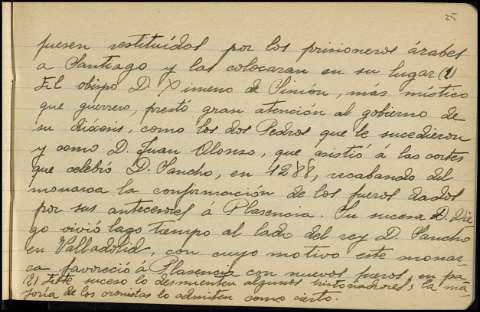 25
fuesen restituídas por los prisioneros árabes
a Santiago y las colocaran en su lugar (1)
El obispo D. Ximeno de Simón, más místico
que guerrero, prestó gran atención al gobierno de
su diócesis, como los dos Pedros que le sucedieron
y como D. Juan Alonso, que asistió á las cortes
que celebró D. Sancho, en 1288, recabando del
monarca la conformación de los fueros dados
por sus antecesores á Plasencia. Su sucesor D. Die
go vivió lago tiempo al lado del rey D. Sancho
en Valladolid, con cuyo motivo este monar-
ca favoreció á Plasencia con nuevos fueros, en pa
(1) Este suceso lo desmienten algunos historiadores; la ma
yoría de los cronistas lo admiten como cierto.